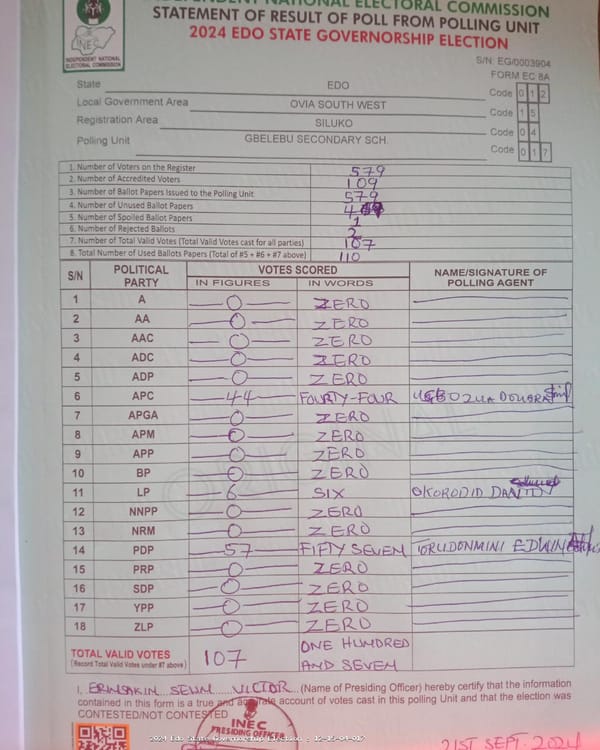 INDEPENDENT NATIONAL ELECTORAL COMMISSION
STATEMENT OF RESULT OF POLL FROM POLLING UNIT
2024 EDO STATE GOVERNORSHIP ELECTION
INEC
INDEPENDENT NATIONAL
ELECTORAL COMMISSION
S/N: EG/0003904
FORM EC 8A
State EDO Code 0 1 2
Local Government Area OVIA SOUTH WEST Code 1 5
Registration Area SILUKO Code 0 4
Polling Unit GBELEBU SECONDARY SCH. Code 0 1 7
1. Number of Voters on the Register 579
2. Number of Accredited Voters 109
3. Number of Ballot Papers Issued to the Polling Unit 579
4. Number of Unused Ballot Papers
5. Number of Spoiled Ballot Papers 1
6. Number of Rejected Ballots 2
7. Number of Total Valid Votes (Total Valid Votes cast for all parties) 107
8. Total Number of Used Ballots Papers (Total of #5 + #6 + #7 above) 110
S/N POLITICAL PARTY VOTES SCORED NAME/SIGNATURE OF POLLING AGENT
IN FIGURES IN WORDS
1 A 0 ZERO
2 AA 0 ZERO
3 AAC 0 ZERO
4 ADC 0 ZERO
5 ADP 0 ZERO
6 APC 44 FOURTY-FOUR
7 APGA 0 ZERO
8 APM 0 ZERO
9 APP 0 ZERO
10 BP 0 ZERO
11 LP 6 SIX OKORODID
12 NNPP 0 ZERO
13 NRM 0 ZERO
14 PDP 57 FIFTY SEVEN TORUDONMINI EDWIN
15 PRP 0 ZERO
16 SDP 0 ZERO
17 YPP 0 ZERO
18 ZLP 0 ZERO
TOTAL VALID VOTES 107 ONE HUNDRED
(Record Total Valid Votes under #7 above) AND SEVEN
I, VICTOR (Name of Presiding Officer) hereby certify that the information
contained in this form is a true and accurate account of votes cast in this polling Unit and that the election was
CONTESTED/NOT CONTESTED
INEC
PRESIDING OFFICER
2024 Edo State Governorship Election : 12-15-04-017
21ST SEPT 2024